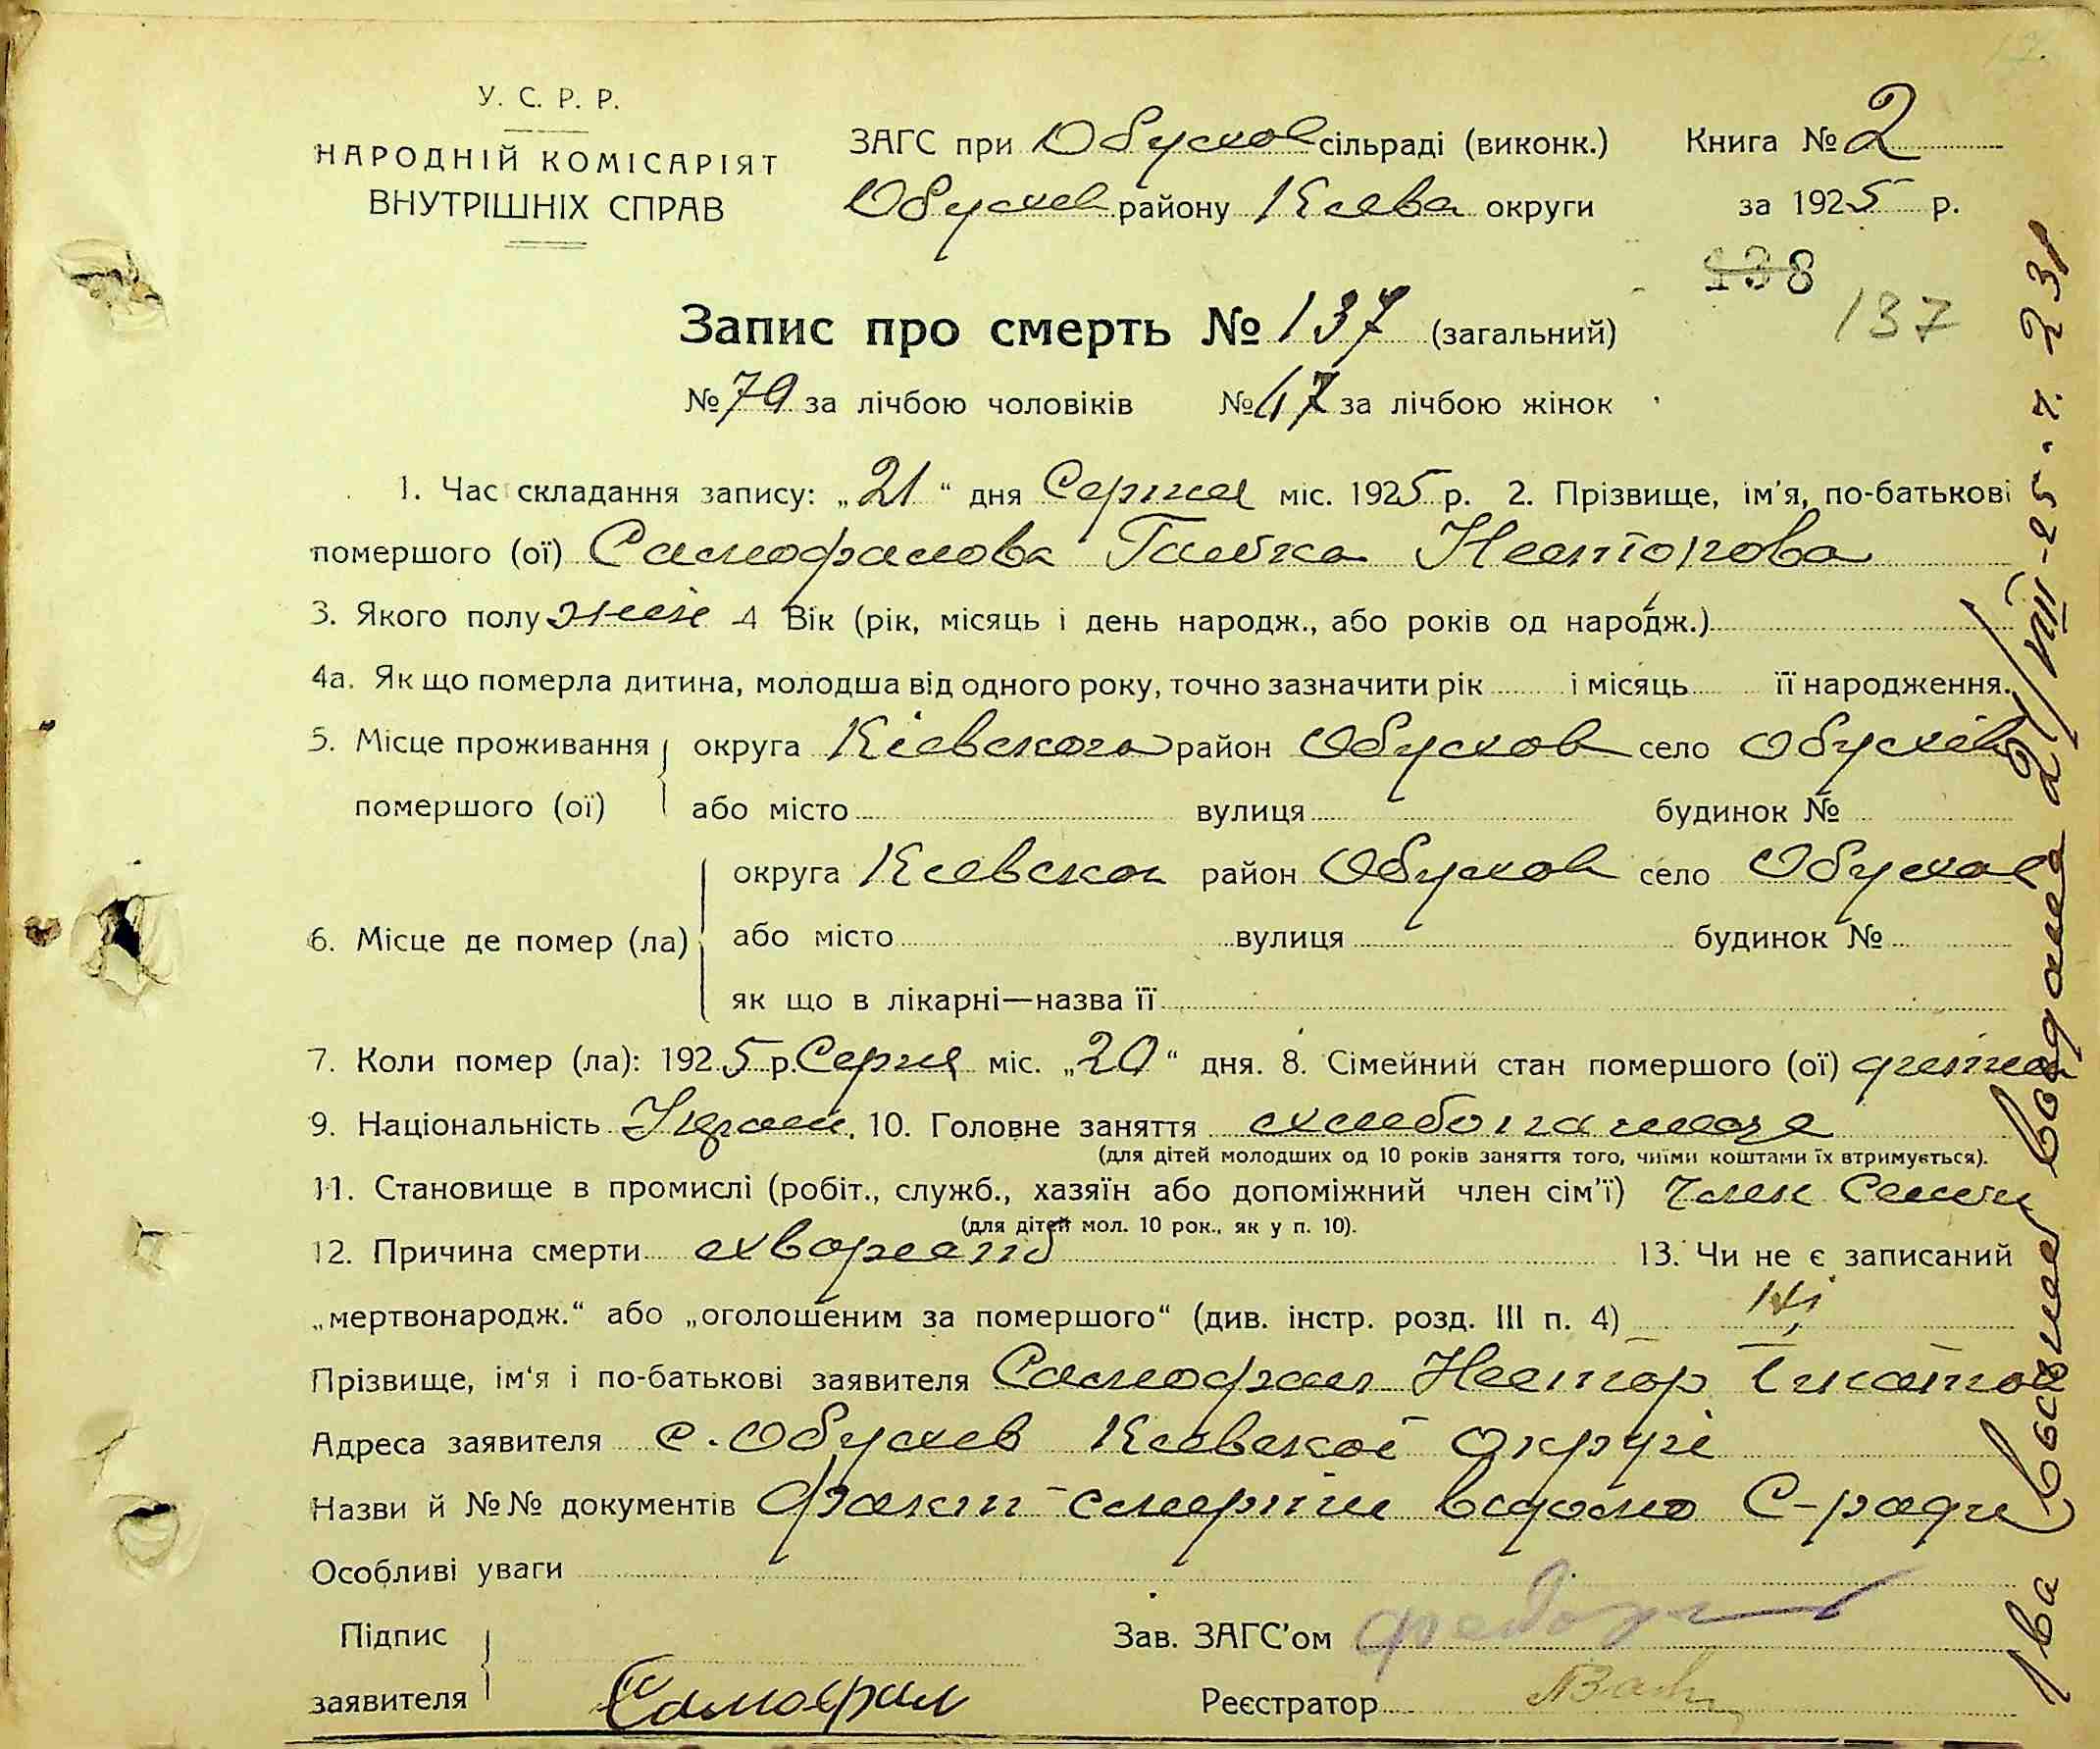 У. С. Р. Р.
НАРОДНІЙ КОМІСАРІЯТ
ВНУТРІШНІХ СПРАВ
ЗАГС при Обухов сільраді (виконк.)
Обухов району Киева округи
Книга № 2
за 1925 р.
138
137
Запис про смерть № 137 (загальний)
№ 79 за лічбою чоловіків № 47 за лічбою жінок
1. Час складання запису: „21“ дня Серпня міс. 1925 р. 2. Прізвище, ім'я, по-батькові
помершого (ої) Самофалова Галька Несторова
3. Якого полу жін 4 Вік (рік, місяць і день народж., або років од народж.)
4а. Як що померла дитина, молодша від одного року, точно зазначити рік і місяць її народження.
5. Місце проживання округа Кіевского район Обухов село Обухів
помершого (ої) або місто вулиця будинок №
округа Киевскои район Обухов село Обухов
6. Місце де помер (ла) або місто вулиця будинок №
як що в лікарні—назва її
7. Коли помер (ла): 1925 р. Серпня міс. „20“ дня. 8. Сімейний стан помершого (ої)
9. Національність Украін. 10. Головне заняття
(для дітей молодших од 10 років заняття того, чиїми коштами їх втримується).
11. Становище в промислі (робіт., служб., хазяїн або допоміжний член сім'ї) Член Семьи
(для дітей мол. 10 рок., як у п. 10).
12. Причина смерти 13. Чи не є записаний
„мертвонародж.“ або „оголошеним за помершого“ (див. інстр. розд. III п. 4) Ні
Прізвище, ім'я і по-батькові заявителя Самофал Нестор
Адреса заявителя с. Обухив Киевскоі округі
Назви й №№ документів факт смерти видомо С-ради
Особливі уваги
Підпис
заявителя Самофал
Зав. ЗАГС'ом
Реєстратор
выдана 21/VIII-25. г. 231